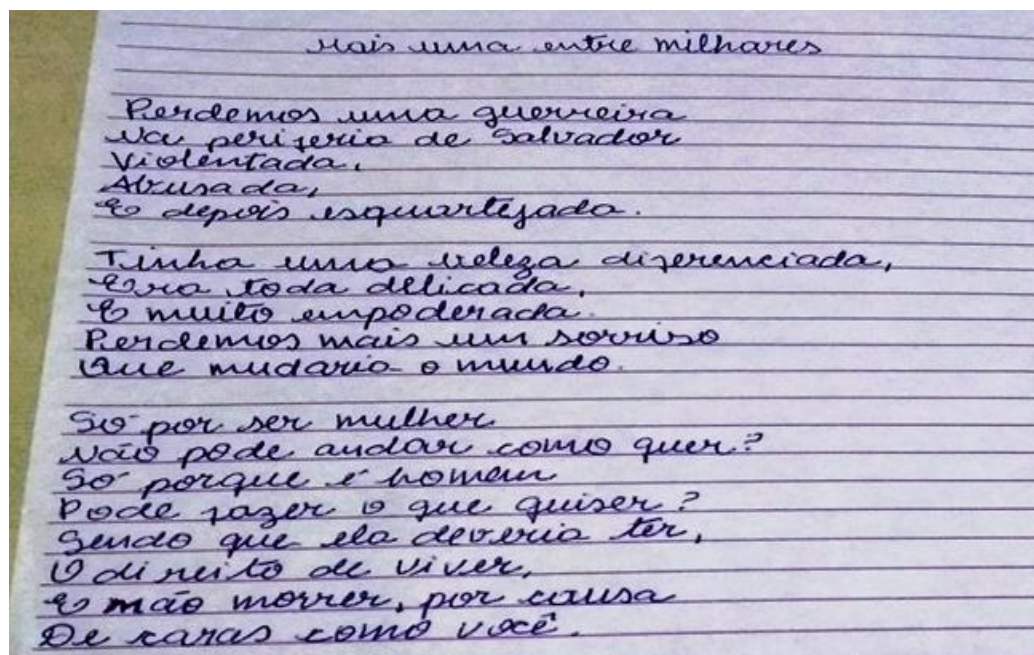 Mais uma entre milhares
Perdemos uma guerreira
Na periferia de Salvador
Violentada,
Abusada,
E depois esquartejada.
Tinha uma beleza diferenciada,
Era toda delicada,
E muito empoderada.
Perdemos mais um sorriso
Que mudaria o mundo.
Só por ser mulher
Não pode andar como quer?
Só porque é homem
Pode fazer o que quiser?
Sendo que ela deveria ter,
O direito de viver,
E não morrer, por causa
De caras como você.